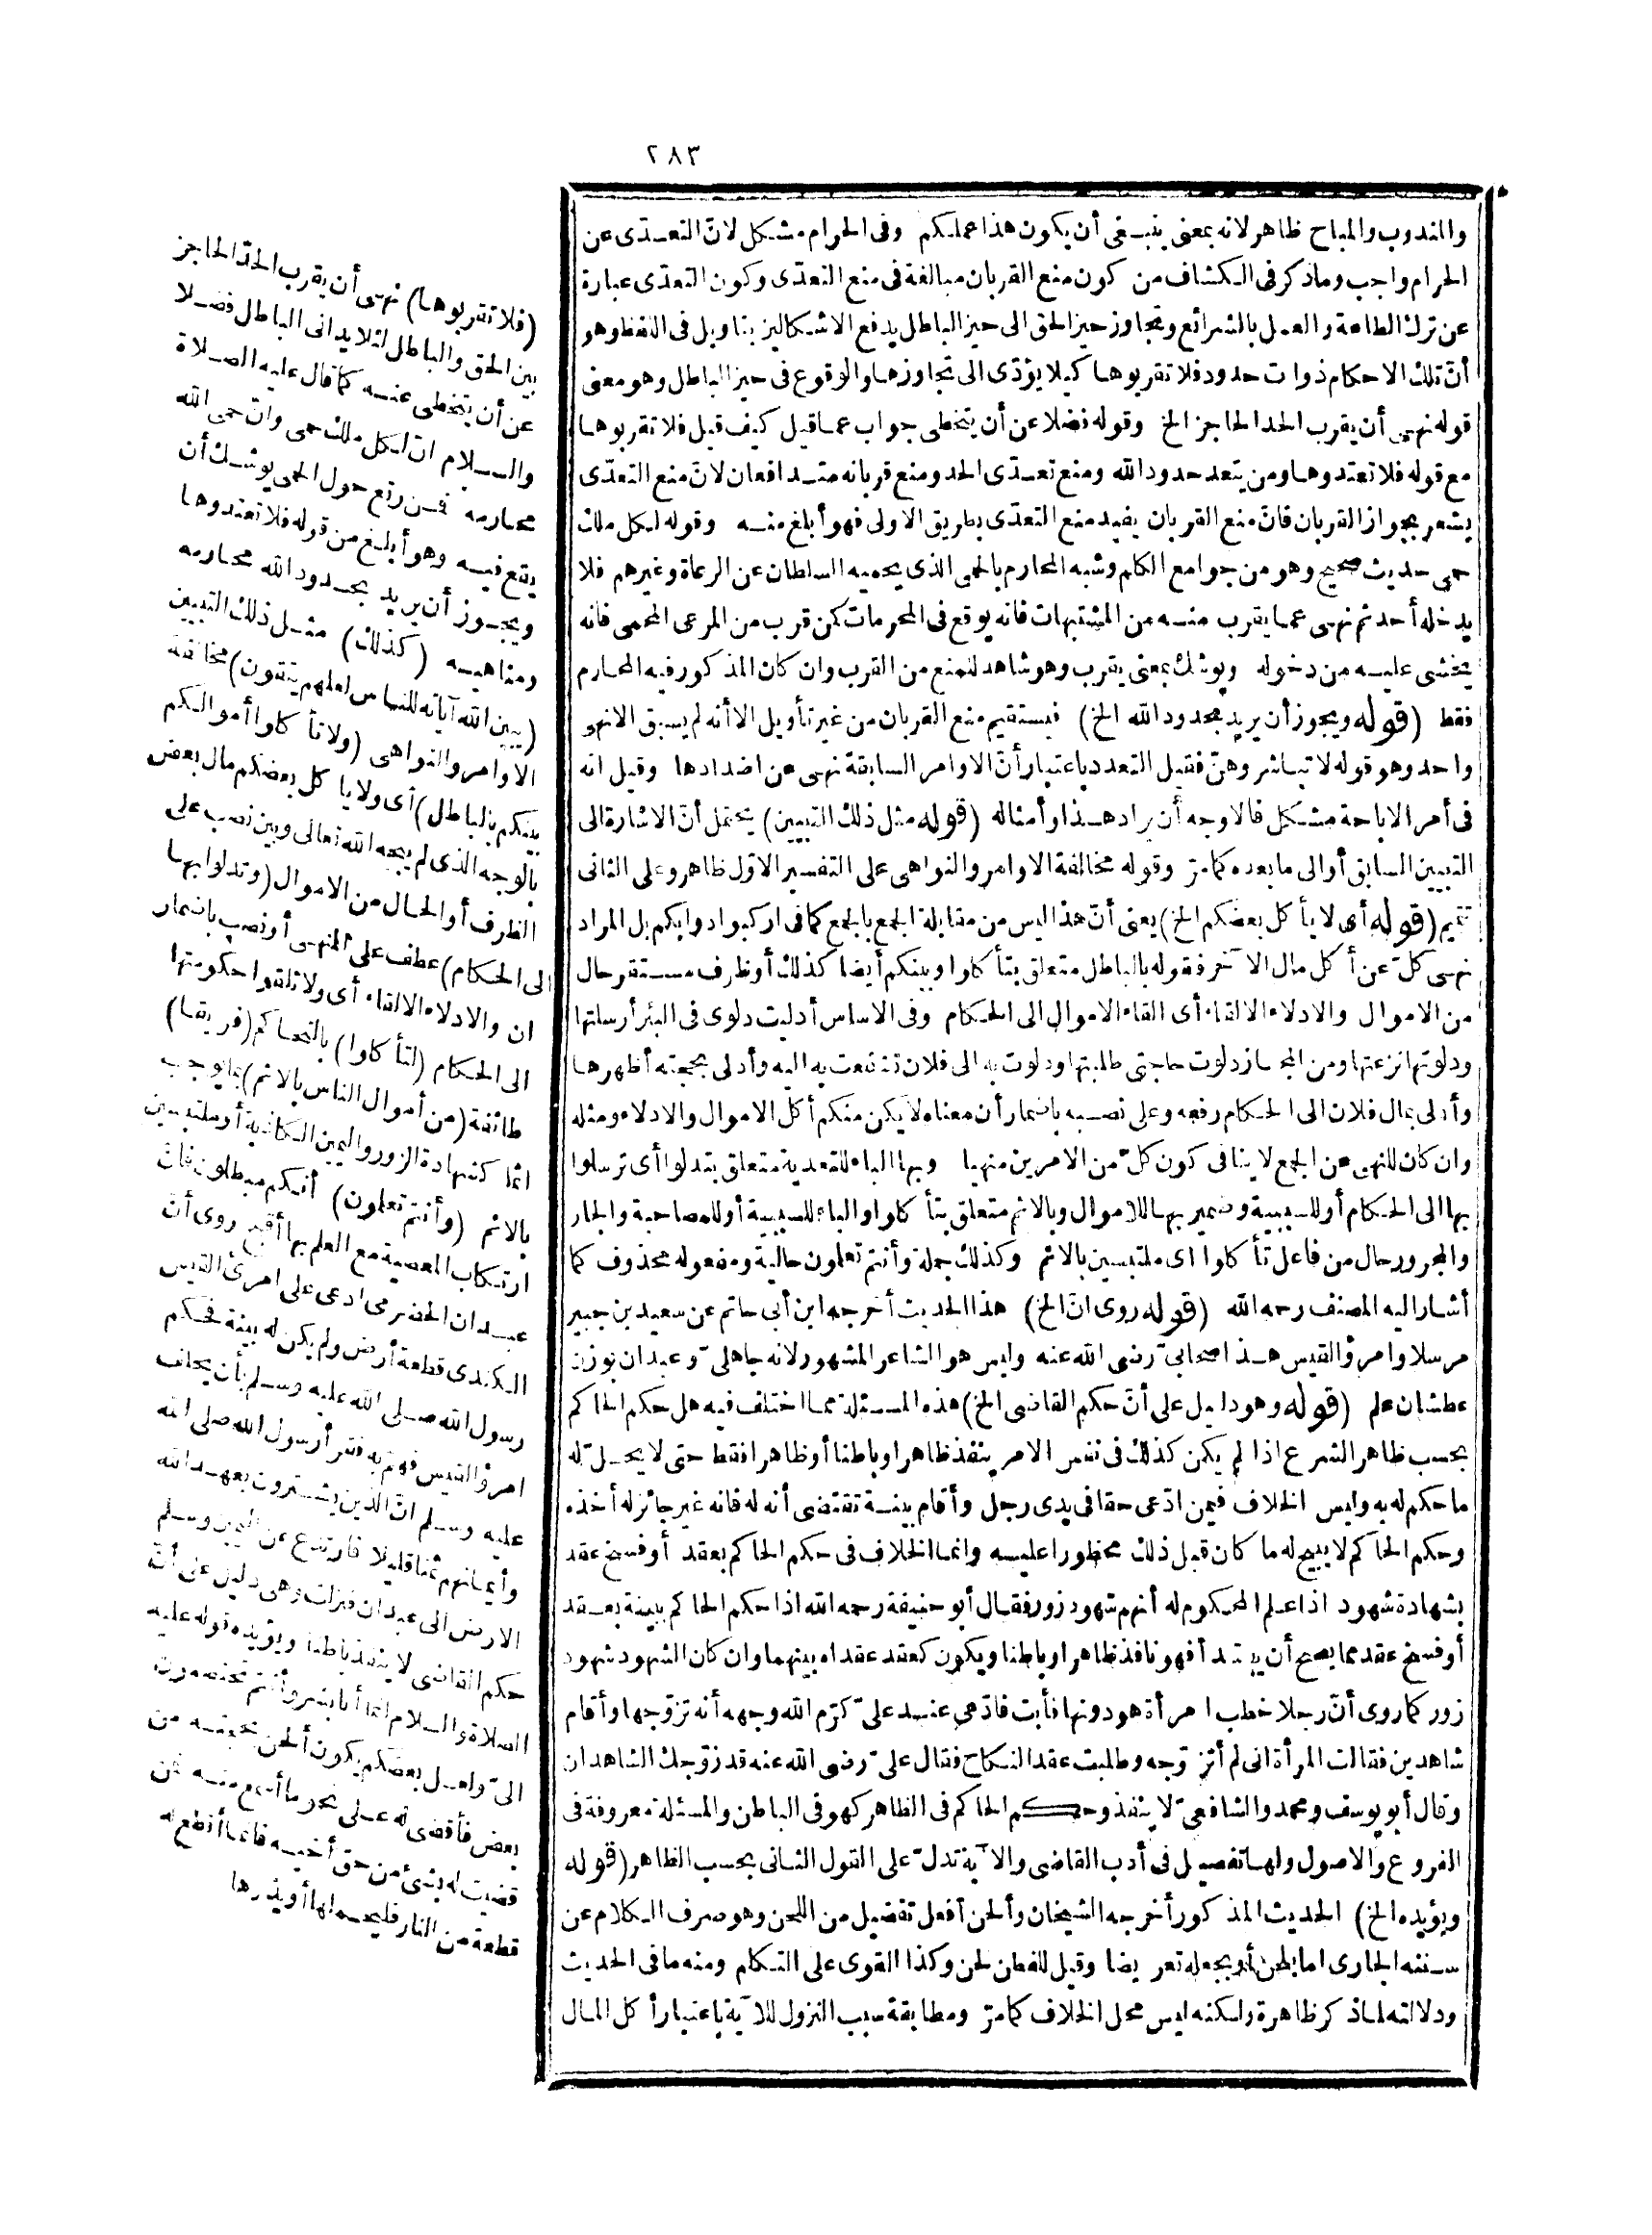 ٢٨٣
والمندوب والمباح ظاهر لانه بمعنى ينبغى أن يكون هذا عملكم وفى الحرام مشكل لانّ التعدّى عن
الحرام واجب وما ذكر فى الكشاف من كون منع القربان مبالغة فى منع التعدّى وكون التعدّى عبارة
عن ترك الطاعة والعمل بالشرائع وتجاوز حيز الحق الى حيز الباطل يدفع الاشكالين بتاويل فى اللفظ وهو
أنّ تلك الاحكام ذوات حدود فلا تقربوها كيلا يؤدّى الى تجاوزها والوقوع فى حيز الباطل وهو معنى
قوله نهى أن يقرب الحد الحاجز الخ وقوله فضلا عن أن يتخطى جواب عما قيل كيف قيل فلا تقربوها
مع قوله فلا تعتدوها ومن يتعد حدود الله ومنع تعدّى الحد ومنع قربانه متدافعان لانّ منع التعدّى
يشعر بجواز القربان فانّ منع القربان يفيد منع التعدّى بطريق الاولى فهو أبلغ منه وقوله لكل ملك
حمى حديث صحيح وهو من جوامع الكلم وشبه المحارم بالحمى الذى يحميه السلطان عن الرعاة وغيرهم فلا
يدخله أحد ثم نهى عما يقرب منه من المشتبهات فانه يوقع فى المحرمات كمن قرب من المرعى المحمى فانه
يخشى عليه من دخوله ويوشك بمعنى يقرب وهو شاهد للمنع من القرب وان كان المذكور فيه المحارم
فقط (قوله ويجوز أن يريد بحدود الله الخ) فيستقيم منع القربان من غير تأويل الا أنه لم يسبق الا نهى
واحد وهو قوله لا تباشروهنّ فقيل التعدد باعتبار أنّ الاوامر السابقة نهى عن اضدادها وقيل انه
فى أمر الاباحة مشكل فالاوجه أن يراد هذا وأمثاله (قوله مثل ذلك التبيين) يحتمل أنّ الاشارة الى
التبيين السابق أو الى ما بعده كما مرّ وقوله مخالفة الاوامر والنواهى على التفسير الاوّل ظاهر وعلى الثانى
تتميم (قوله أى لا يأكل بعضكم الخ) يعنى أنّ هذا ليس من مقابلة الجمع بالجمع كما فى اركبوا دوابكم بل المراد
نهى كلّ عن أكل مال الآخر فقوله بالباطل متعلق بتأكلوا وبينكم أيضا كذلك أو ظرف مستقر حال
من الاموال والادلاء الالقاء أى القاء الاموال الى الحكام وفى الاساس أدليت دلوى فى البئر أرسلتها
ودلوتها نزعتها ومن المجاز دلوت حاجتى طلبتها ودلوت به الى فلان تشفعت به اليه وأدلى بحجته أظهرها
وأدلى بمال فلان الى الحكام رفعه وعلى نصبه باضمار أن معناه لا يكن منكم أكل الاموال والادلاء ومثله
وان كان للنهى عن الجمع لا ينافى كون كلّ من الامرين منهيا وبها الباء للتعدية متعلق بتدلوا أى ترسلوا
بها الى الحكام أو للسببية وضمير بها للاموال وبالاثم متعلق بتأكلوا والباء للسببية أو للمصاحبة والجار
والمجرور حال من فاعل تأكلوا اى ملتبسين بالاثم وكذلك جملة وأنتم تعلمون حالية ومفعوله محذوف كما
أشار اليه المصنف رحمه الله (قوله روى انّ الخ) هذا الحديث أخرجه ابن أبى حاتم عن سعيد بن جبير
مرسلا وامرؤ القيس هذا صحابىّ رضى الله عنه وليس هو الشاعر المشهور لانه جاهلىّ وعبدان بوزن
عطشان علم (قوله وهو دليل على أنّ حكم القاضى الخ) هذه المسئلة مما اختلف فيه هل حكم الحاكم
بحسب ظاهر الشرع اذا لم يكن كذلك فى نفس الامر ينفذ ظاهرا وباطنا أو ظاهرا فقط حتى لا يحلّ له
ما حكم له به وليس الخلاف فيمن ادّعى حقا فى يدى رجل وأقام بينة تقتضى أنه له فانه غير جائز له أخذه
وحكم الحاكم لا يبيح له ما كان قبل ذلك محظورا عليه وانما الخلاف فى حكم الحاكم بعقد أو فسخ عقد
بشهادة شهود اذا علم المحكوم له أنهم شهود زور فقال أبو حنيفة رحمه الله اذا حكم الحاكم ببينة بعقد
أو فسخ عقد مما يصح أن يبتدأ فهو نافذ ظاهرا وباطنا ويكون كعقد عقداه بينهما وان كان الشهود شهود
زور كما روى أنّ رجلا خطب امرأة هو دونها فأبت فادّعى عند علىّ كرّم الله وجهه أنه تزوّجها وأقام
شاهدين فقالت المرأة انى لم أتزوّجه وطلبت عقد النكاح فقال علىّ رضى الله عنه قد زوّجك الشاهدان
وقال أبو يوسف ومحمد والشافعىّ لا ينفذ وحكم الحاكم فى الظاهر كهو فى الباطن والمسئلة معروفة فى
الفروع والاصول ولها تفصيل فى أدب القاضى والآية تدلّ على القول الثانى بحسب الظاهر (قوله
ويؤيده الخ) الحديث المذكور أخرجه الشيخان وألحن أفعل تفضيل من اللحن وهو صرف الكلام عن
سننه الجارى اما بلحن أو بجعله تعريضا وقيل للفطن لحن وكذا القوى على التكلم ومنه ما فى الحديث
ودلالته لما ذكر ظاهرة ولكنه ليس محل الخلاف كما مرّ ومطابقة سبب النزول للآية باعتبار أكل المال
(فلا تقربوها) نهى أن يقرب الحدّ الحاجز
بين الحق والباطل لئلا يدانى الباطل فضلا
عن أن يتخطى عنه كما قال عليه الصلاة
والسلام انّ لكل ملك حمى وانّ حمى الله
محارمه فمن رتع حول الحمى يوشك أن
يقع فيه وهو أبلغ من قوله فلا تعتدوها
ويجوز أن يريد بحدود الله محارمه
ومناهيه (كذلك) مثل ذلك التبيين
(يبين الله آياته للناس لعلهم يتقون) مخالفة
الاوامر والنواهى (ولا تأكلوا أموالكم
بينكم بالباطل) أى ولا يأكل بعضكم مال بعض
بالوجه الذى لم يبحه الله تعالى وبين نصب على
الظرف أو الحال من الاموال (وتدلوا بها
الى الحكام) عطف على المنهى أو نصب باضمار
ان والادلاء الالقاء أى ولا تلقوا حكومتها
الى الحكام (لتأكلوا) بالتحاكم (فريقا)
طائفة (من أموال الناس بالاثم) بما يوجب
اثما كشهادة الزور واليمين الكاذبة أو ملتبسين
بالاثم (وأنتم تعلمون) أنكم مبطلون فانّ
ارتكاب المعصية مع العلم بها أقبح روى أنّ
عبدان الحضرمى ادعى على امرئ القيس
الكندى قطعة أرض ولم يكن له بينة فحكم
رسول الله صلى الله عليه وسلم بأن يحلف
امرؤ القيس فهمّ به فقرأ رسول الله صلى الله
عليه وسلم انّ الذين يشترون بعهد الله
وأيمانهم ثمنا قليلا فارتدع عن اليمين وسلم
الارض الى عبدان فنزلت وهى دليل على أنّ
حكم القاضى لا ينفذ باطنا ويؤيده قوله عليه
الصلاة والسلام انما أنا بشر وأنتم تختصمون
الىّ ولعل بعضكم يكون ألحن بحجته من
بعض فأقضى له على نحو ما أسمع منه فمن
قضيت له بشئ من حق أخيه فانما أقطع له
قطعة من النار فليحملها أو يذرها